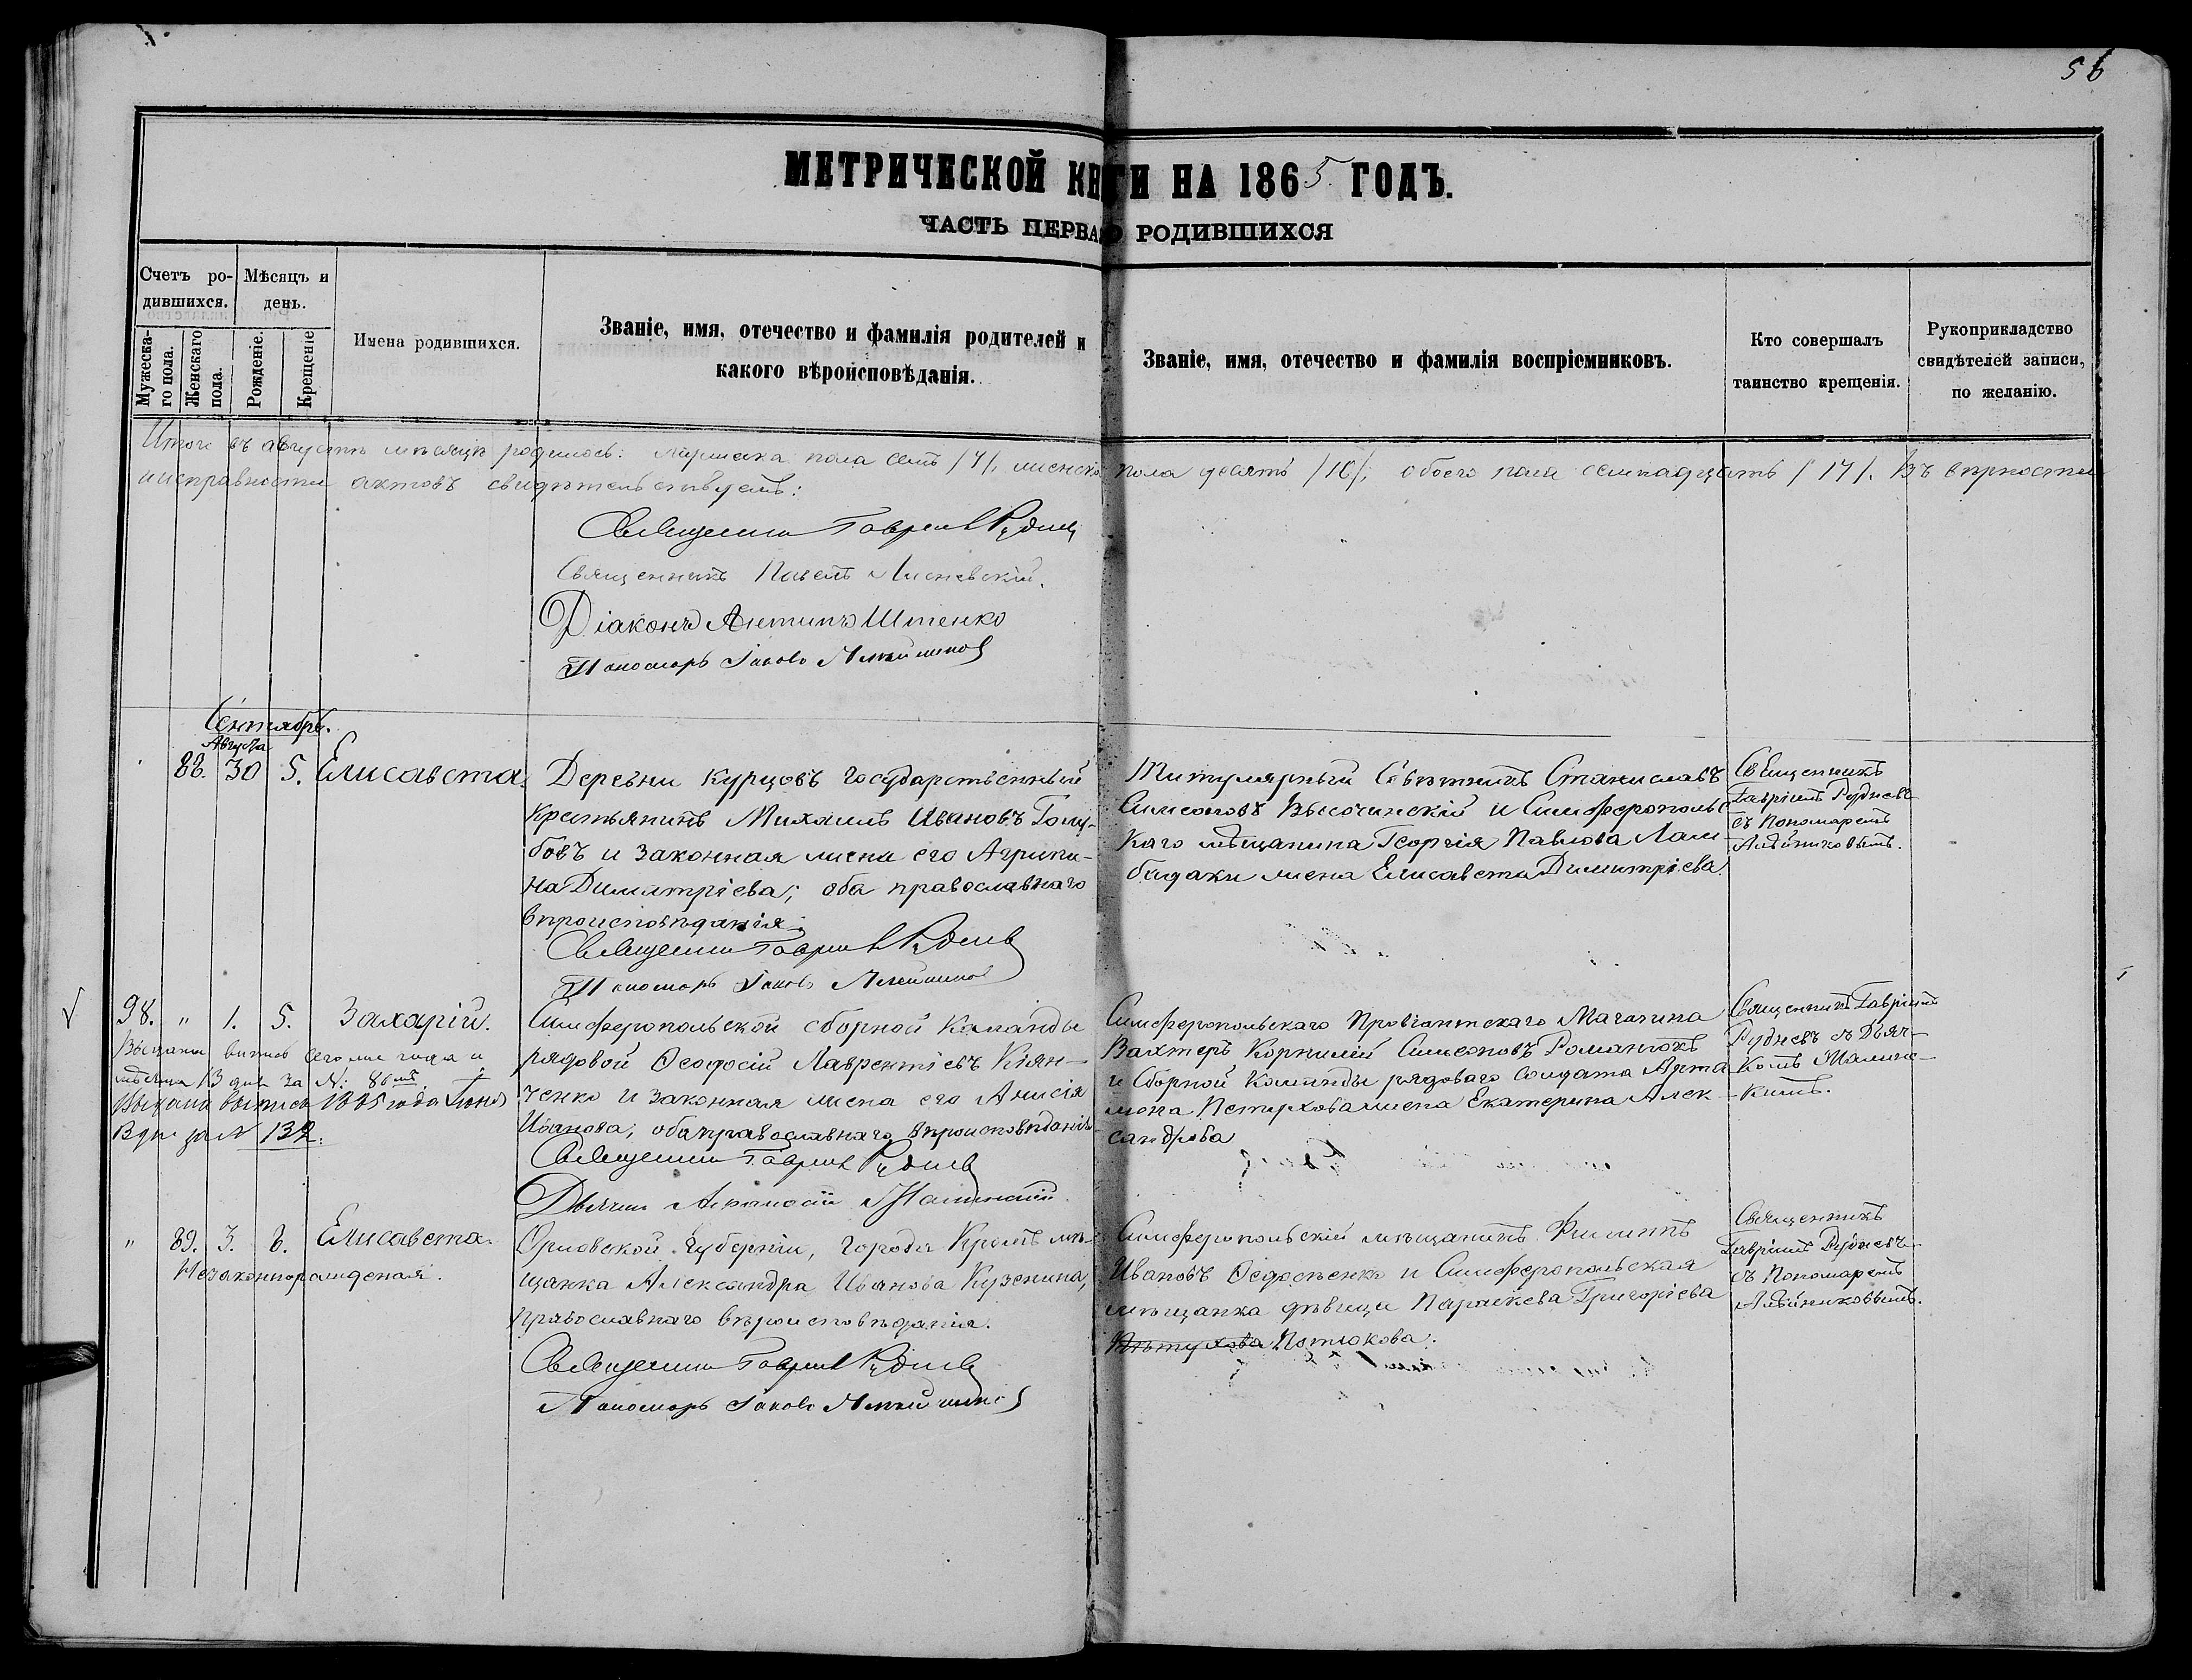 56
МЕТРИЧЕСКОЙ КНИГИ НА 1865 ГОДЪ.
ЧАСТЬ ПЕРВАЯ О РОДИВШИХСЯ
Счетъ родившихся.
Мужескаго пола.
Женскаго пола.
Мѣсяцъ и день.
Рожденіе.
Крещеніе
Имена родившихся.
Званіе, имя, отечество и фамилія родителей и
какого вѣроисповѣданія.
Званіе, имя, отечество и фамилія воспріемниковъ.
Кто совершалъ
таинство крещенія.
Рукоприкладство
свидѣтелей записи,
по желанію.
Итого въ августѣ мѣсяцѣ родилось: мужеска пола семь /7/, женска пола десять /10/, обоего пола семнадцать /17/. Въ вѣрности
и исправности актовъ свидѣтельствуемъ:
Священникъ Гавріилъ Рудневъ
Священникъ Павелъ
Діаконъ Антипъ Штенко
Пономарь Іаковъ Алейниковъ
Сентябрь.
Августа
88. 30 5. Елисавета.
Деревни Курцовъ государственный
крестьянинъ Михаилъ Ивановъ Голу-
бовъ и законная жена его Агрипи-
на Димитріева; оба православнаго
вѣроисповѣданія.
Священникъ Гавріилъ Рудневъ
Пономарь Іаковъ Алейниковъ
Титулярный Совѣтникъ Станиславъ
Симеоновъ Высочинскій и Симферопольс
каго мѣщанина Георгія Павлова Лам
бадаки жена Елисавета Димитріева.
Священникъ
Гавріилъ Рудневъ
съ Пономаремъ
Алейниковымъ.
98. " 1. 5. Захарій.
Выдана выпись сего же года и
мѣсяца 13 дня за №: 86мъ.
Выдана выпись 1885 года Іюня
дня за № 132.
Симферопольской сборной Команды
рядовой Ѳеодосій Лаврентіевъ Кіян-
ченко и законная жена его Анисія
Иванова; оба православнаго вѣроисповѣданія
Священникъ Гавріилъ Рудневъ
Дьячекъ Малинскій.
Симферопольскаго Провіантскаго Магазина
Вахтеръ Корнилій Симеоновъ Романюкъ
и Сборной Команды рядоваго солдата Арта
мона Петухова жена Екатерина Алек-
сандрова
Священникъ Гавріилъ
Рудневъ съ Дьяч-
комъ Малинс-
кимъ.
" 89. 3. 8. Елисавета.
Незаконнорожденая.
Орловской Губерніи, города Кромъ мѣ-
щанка Александра Иванова Кузенина,
православнаго вѣроисповѣданія.
Священникъ Гавріилъ Рудневъ
Пономарь Іаковъ Алейниковъ
Симферопольскій мѣщанинъ Филиппъ
Ивановъ Ѳедосѣенко и Симферопольская
мѣщанка дѣвица Параскева Григоріева
Пѣтухова Потюкова.
Священникъ
Гавріилъ Рудневъ
съ Пономаремъ
Алейниковымъ.